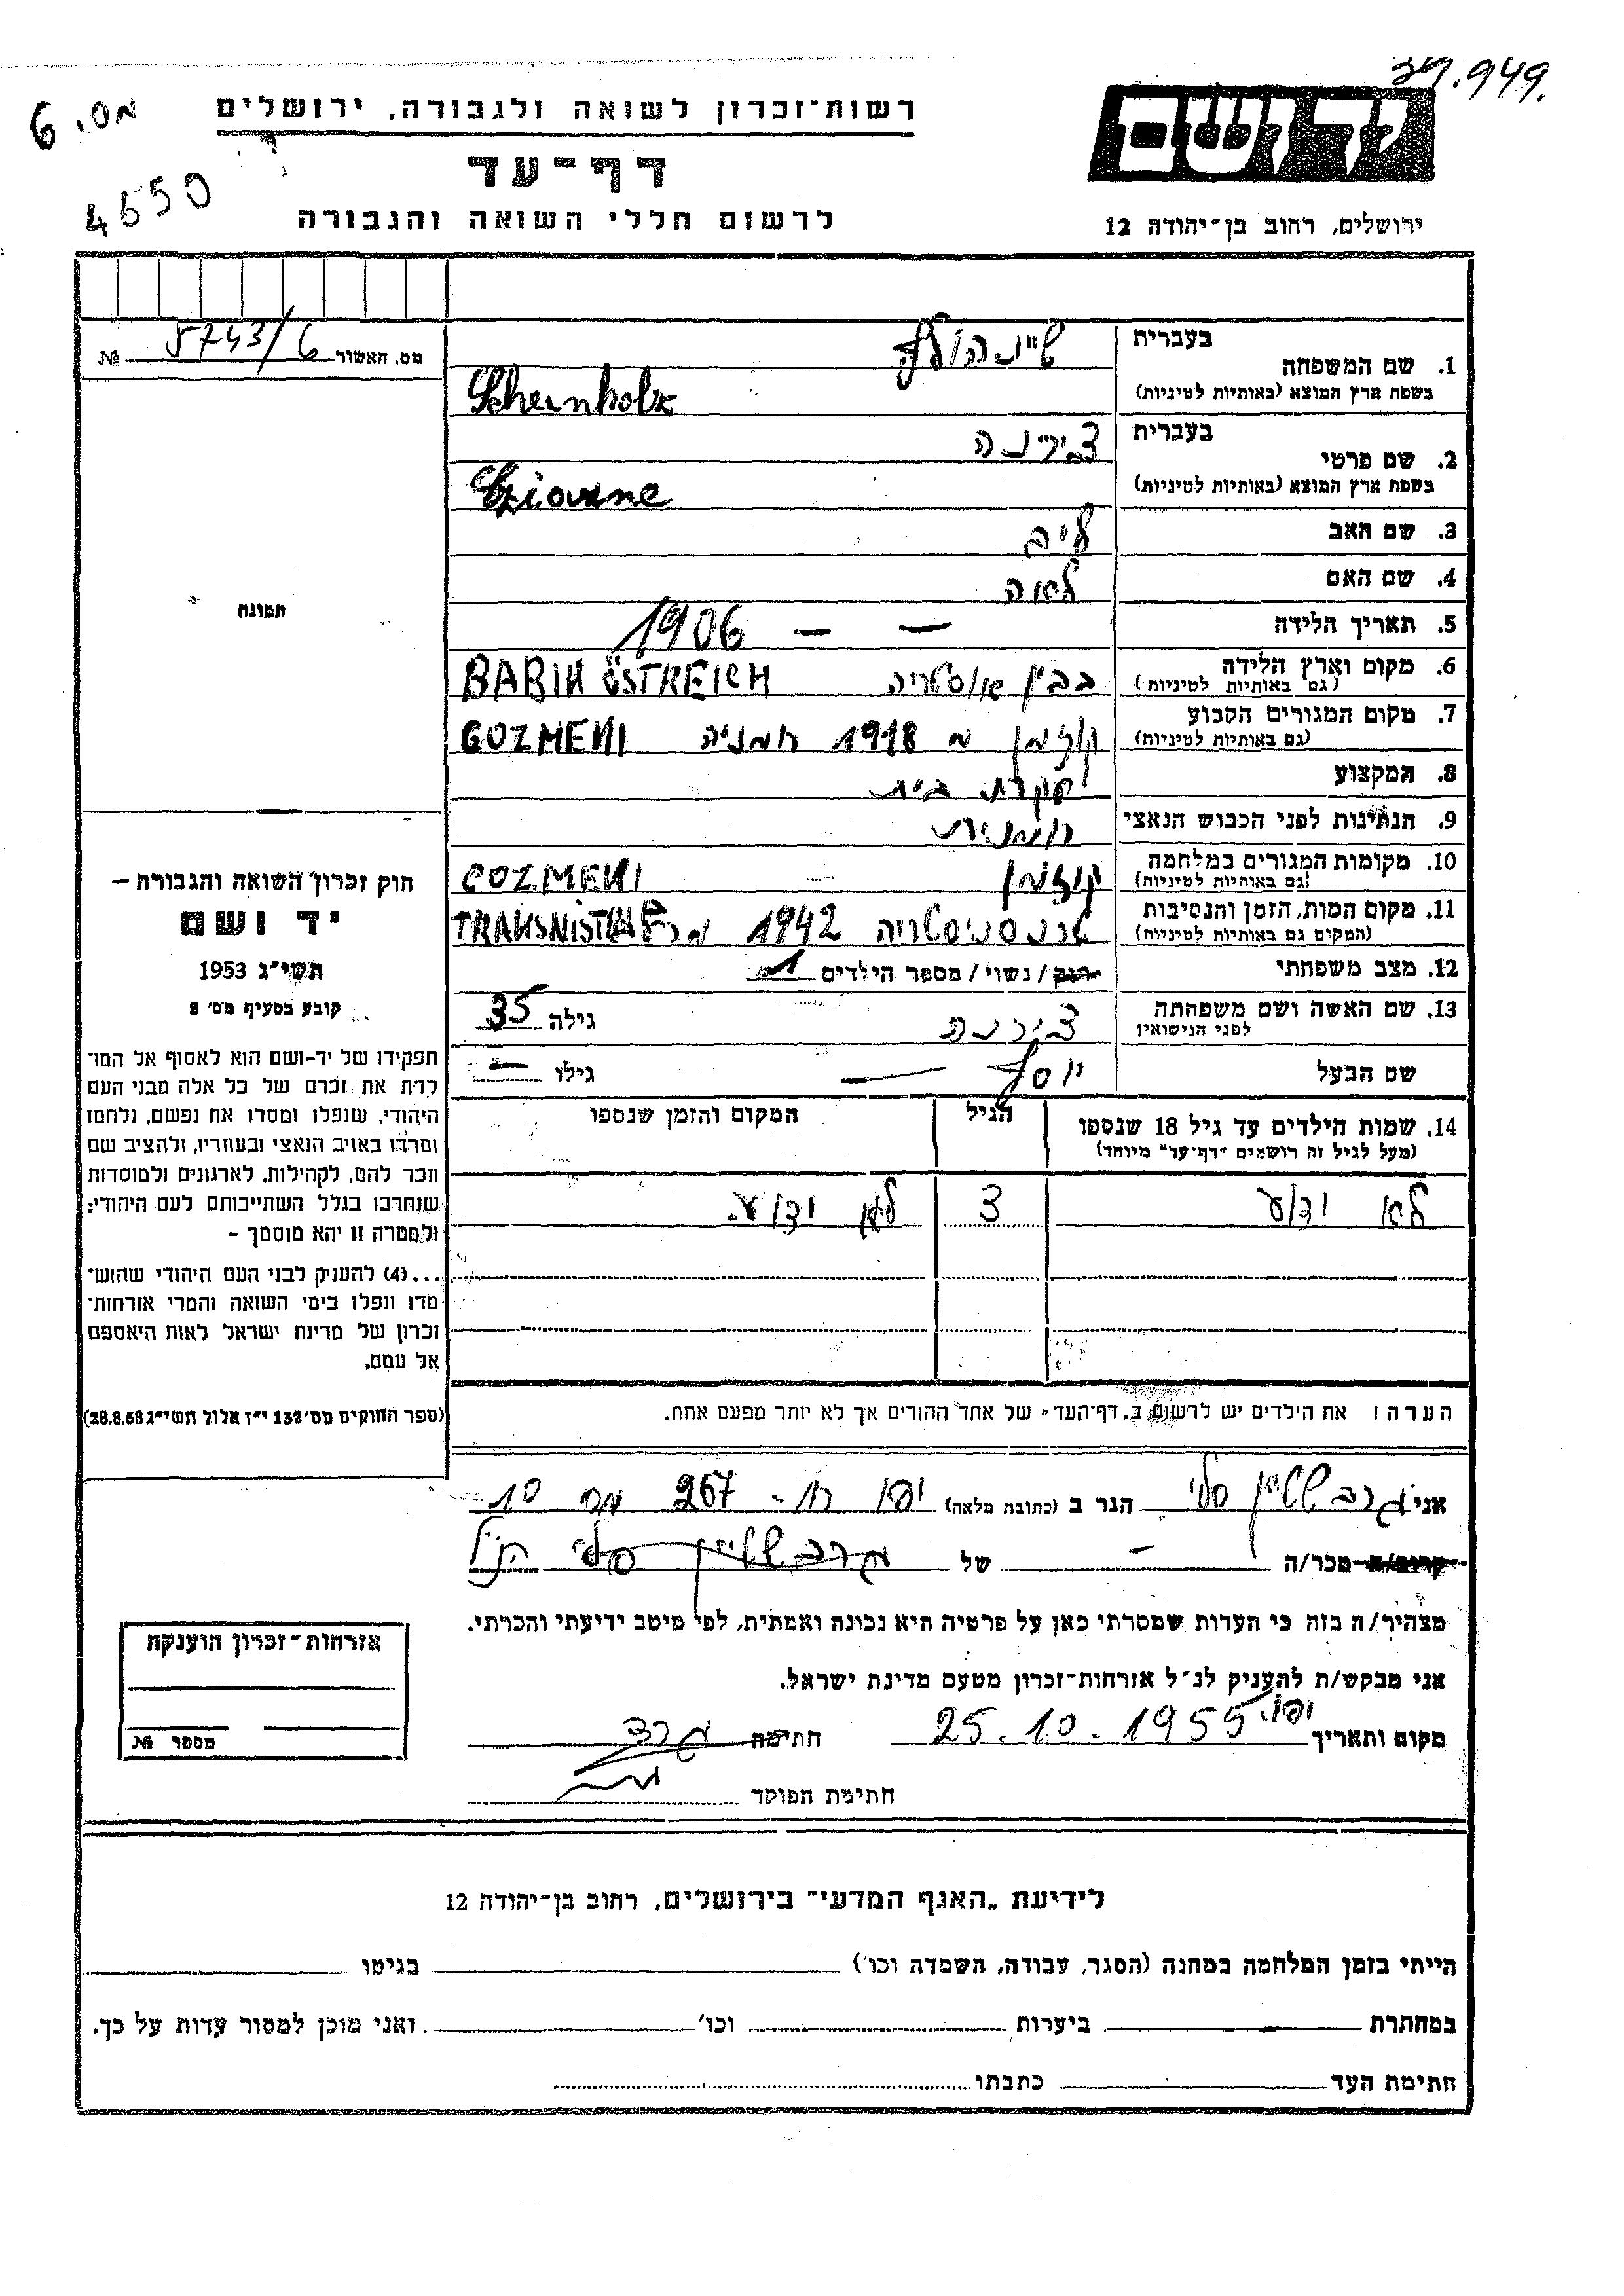 34.949.
מס. 6
4550
רשות־זכרון לשואה ולגבורה, ירושלים
יד ושם
דף־עד
לרשום חללי השואה והגבורה
ירושלים, רחוב בן־יהודה 12
מס. האשור 5743/6 №
בעברית שיינהולץ
1. שם המשפחה
בשפת ארץ המוצא (באותיות לטיניות) Scheinholz
בעברית צירנה
2. שם פרטי
בשפת ארץ המוצא (באותיות לטיניות)
3. שם האב לייב
4. שם האם לאה
5. תאריך הלידה — — 1906
6. מקום וארץ הלידה בבין אוסטריה BABIN ÖSTREICH
(גם באותיות לטיניות)
7. מקום המגורים הקבוע קוזמן מ 1918 רומניה COZMENI
(גם באותיות לטיניות)
8. המקצוע עקרת בית
9. הנתינות לפני הכבוש הנאצי רומנית
10. מקומות המגורים במלחמה קוזמן COZMENI
(גם באותיות לטיניות)
11. מקום המות, הזמן והנסיבות טרנסניסטריה 1942
(המקום גם באותיות לטיניות)
12. מצב משפחתי רווק / נשוי / מספר הילדים 1
13. שם האשה ושם משפחתה צירנה גילה 35
לפני הנישואין
שם הבעל יוסף — גילו —
14. שמות הילדים עד גיל 18 שנספו הגיל המקום והזמן שנספו
(מעל לגיל זה רושמים "דף־עד" מיוחד)
לא ידוע 3 לא ידוע
הערה: את הילדים יש לרשום ב„דף־העד" של אחד ההורים אך לא יותר מפעם אחת.
תמונה
חוק זכרון השואה והגבורה —
יד ושם
תשי"ג 1953
קובע בסעיף מס' 2
תפקידו של יד-ושם הוא לאסוף אל המו־
לדת את זכרם של כל אלה מבני העם
היהודי, שנפלו ומסרו את נפשם, נלחמו
ומרדו באויב הנאצי ובעוזריו, ולהציב שם
וזכר להם, לקהילות, לארגונים ולמוסדות
שנחרבו בגלל השתייכותם לעם היהודי;
ולמטרה זו יהא מוסמך —
...(4) להעניק לבני העם היהודי שהוש־
מדו ונפלו בימי השואה והמרי אזרחות־
זכרון של מדינת ישראל לאות היאספם
אל עמם.
(ספר החוקים מס' 132 י"ז אלול תשי"ג 28.8.53)
אני גרבשטיין סלי הגר ב (כתובת מלאה) יפו רח' 267 מס 10
קרוב/ה מכר/ה — של גרבשטיין סלי הנ"ל
מצהיר/ה בזה כי העדות שמסרתי כאן על פרטיה היא נכונה ואמתית, לפי מיטב ידיעתי והכרתי.
אני מבקש/ת להעניק לנ"ל אזרחות־זכרון מטעם מדינת ישראל.
מקום ותאריך יפו. 25.10.1955 חתימה
חתימת הפוקד
אזרחות־זכרון הוענקה
מספר №
לידיעת „האגף המדעי" בירושלים, רחוב בן־יהודה 12
הייתי בזמן המלחמה במחנה (הסגר, עבודה, השמדה וכו') בגיטו
במחתרת ביערות וכו' ואני מוכן למסור עדות על כך.
חתימת העד כתבתו